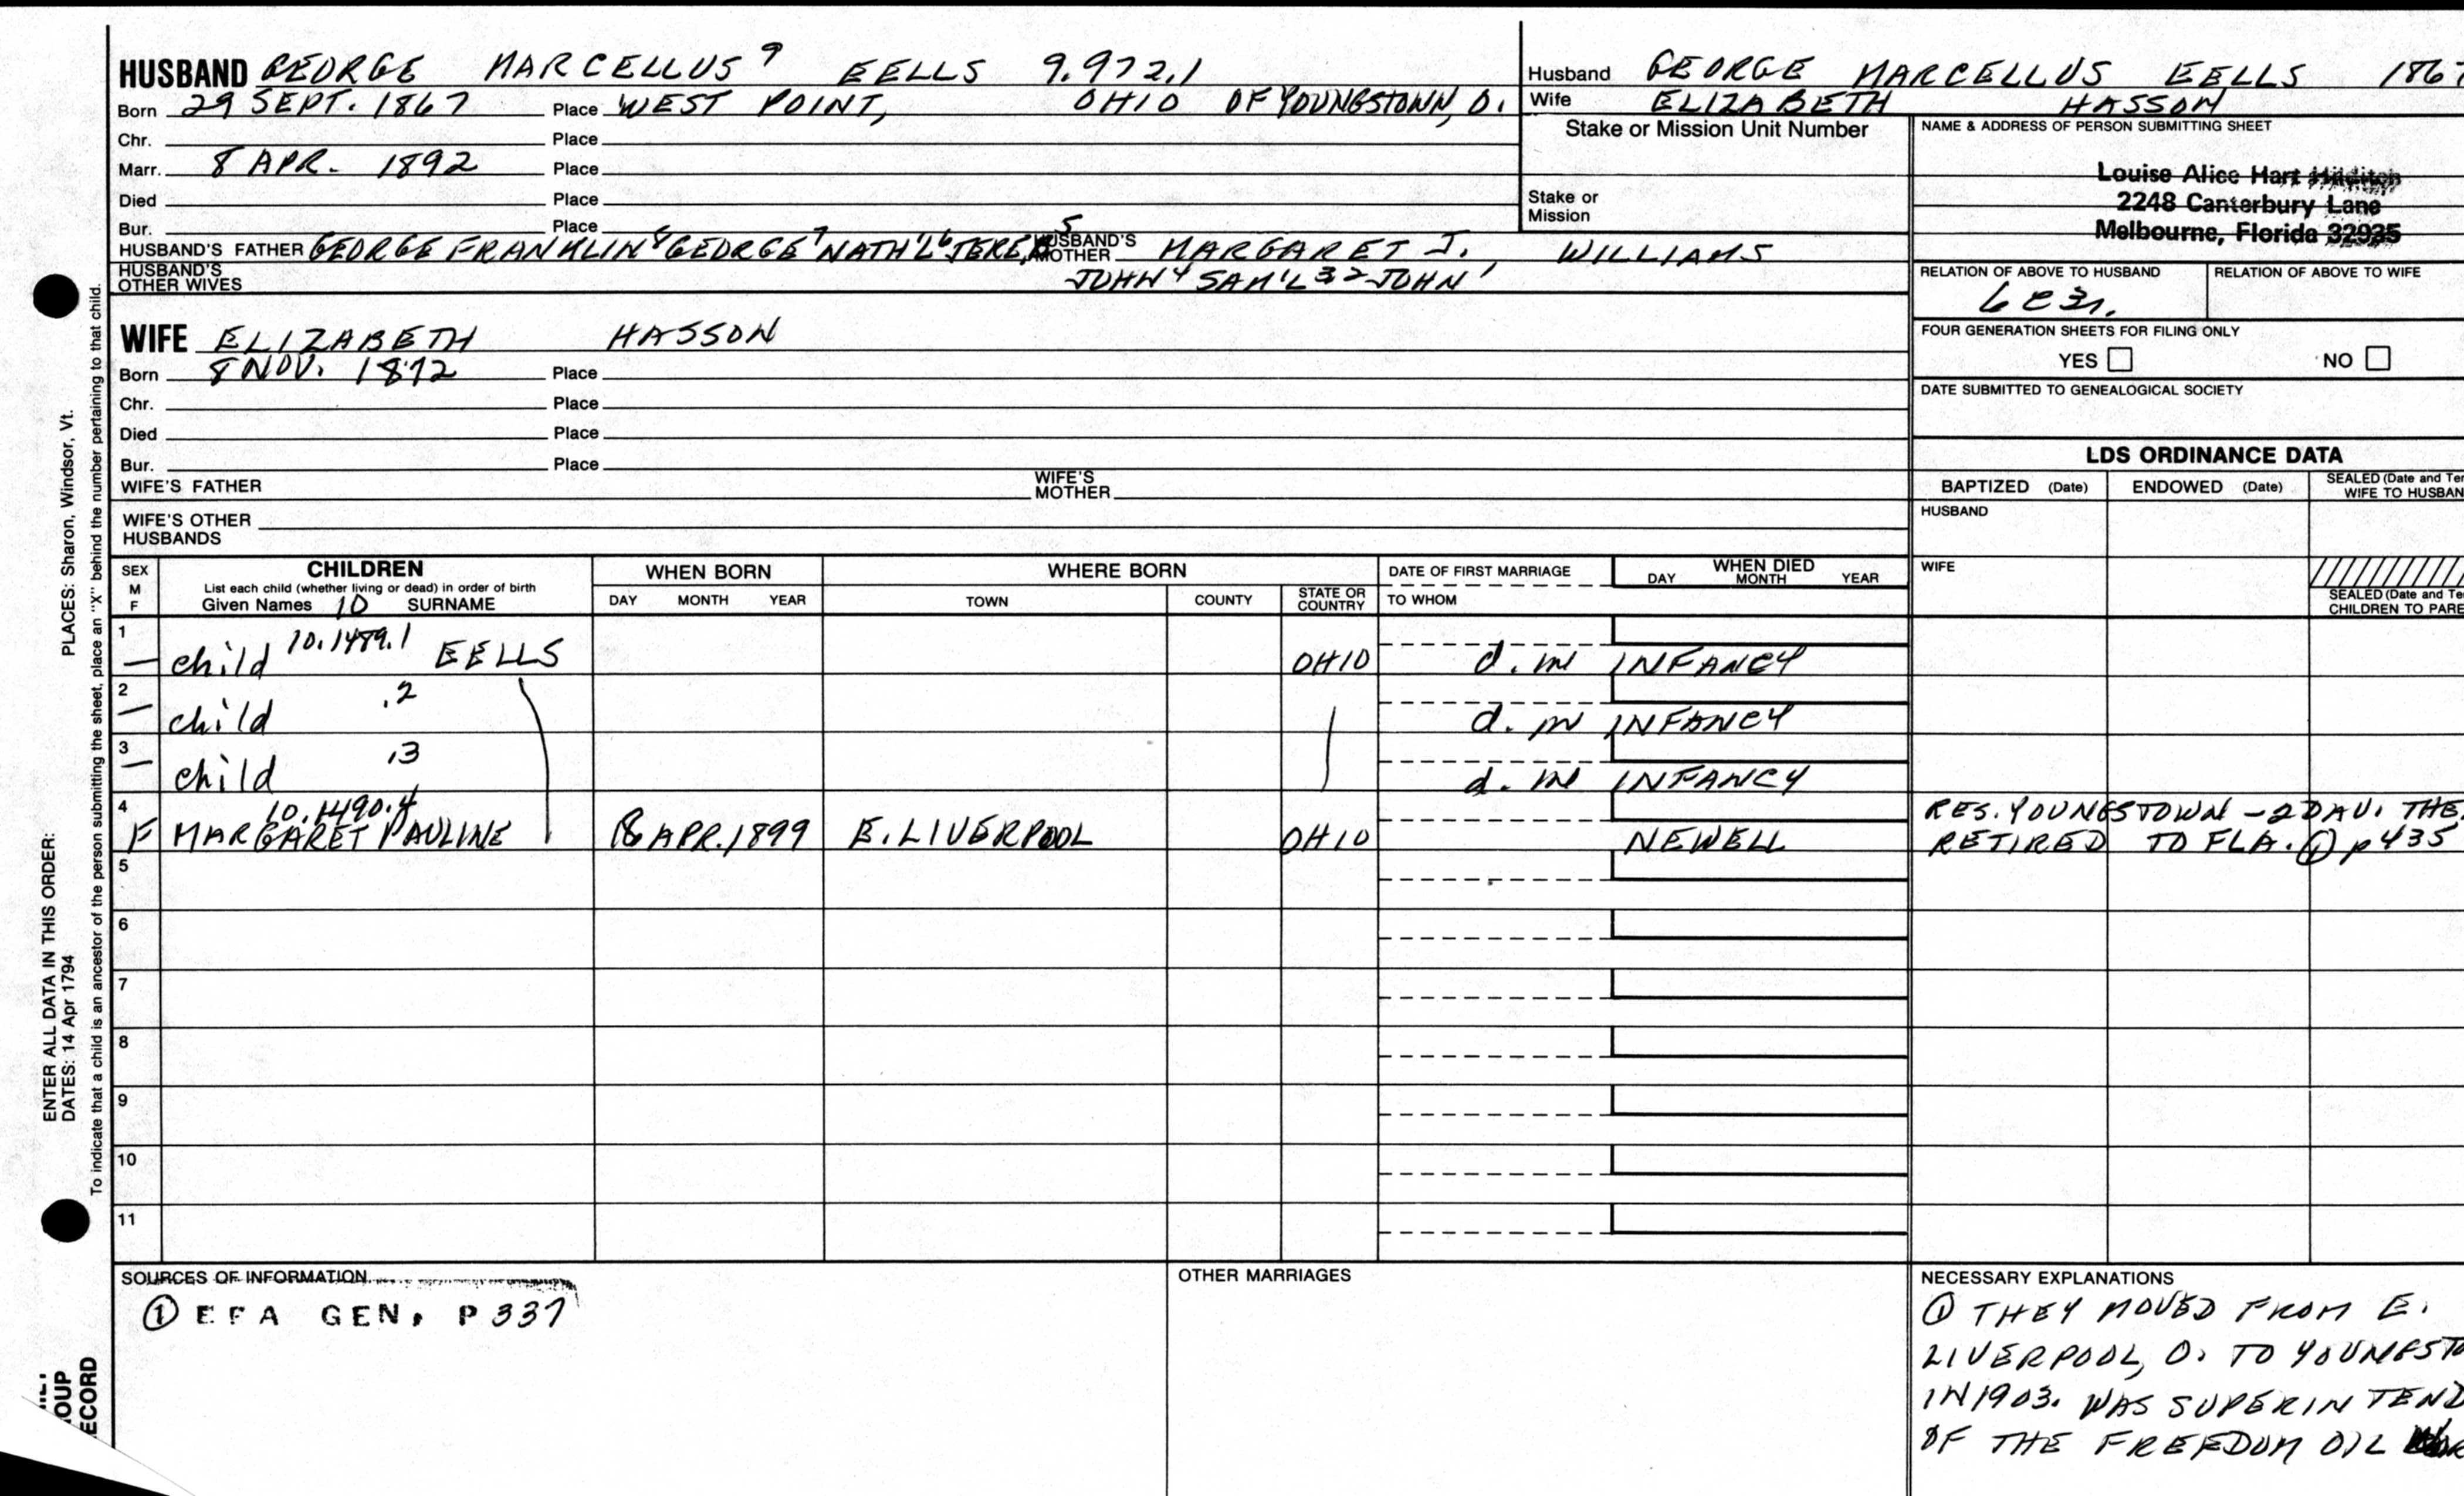 HUSBAND GEORGE MARCELLUS⁹ EELLS 9.972.1
Born 29 SEPT. 1867 Place WEST POINT, OHIO OF YOUNGSTOWN, O.
Chr. Place
Marr. 8 APR. 1892 Place
Died Place
Bur. Place
HUSBAND'S FATHER GEORGE FRANKLIN⁸ GEORGE⁷ NATH'L⁶ JERE.⁵ HUSBAND'S MOTHER MARGARET J. WILLIAMS
HUSBAND'S OTHER WIVES JOHN⁴ SAM'L³² JOHN¹
WIFE ELIZABETH HASSON
Born 8 NOV. 1872 Place
Chr. Place
Died Place
Bur. Place
WIFE'S FATHER WIFE'S MOTHER
WIFE'S OTHER HUSBANDS
Husband GEORGE MARCELLUS EELLS 186
Wife ELIZABETH HASSON
Stake or Mission Unit Number
Stake or Mission
NAME & ADDRESS OF PERSON SUBMITTING SHEET
Louise Alice Hart Hilditch
2248 Canterbury Lane
Melbourne, Florida 32935
RELATION OF ABOVE TO HUSBAND RELATION OF ABOVE TO WIFE
6c3r.
FOUR GENERATION SHEETS FOR FILING ONLY
YES NO
DATE SUBMITTED TO GENEALOGICAL SOCIETY
LDS ORDINANCE DATA
BAPTIZED (Date) ENDOWED (Date) SEALED (Date and Tem
WIFE TO HUSBAN
HUSBAND
WIFE
SEALED (Date and Te
CHILDREN TO PARE
SEX M F
CHILDREN
List each child (whether living or dead) in order of birth
Given Names 10 SURNAME
WHEN BORN
DAY MONTH YEAR
WHERE BORN
TOWN COUNTY STATE OR COUNTRY
DATE OF FIRST MARRIAGE
TO WHOM
WHEN DIED
DAY MONTH YEAR
1 — child 10.1489.1 EELLS OHIO d. in INFANCY
2 — child .2 d. in INFANCY
3 — child .3 d. in INFANCY
4 10.1490.4
F MARGARET PAULINE 8 APR. 1899 E. LIVERPOOL OHIO NEWELL
RES. YOUNGSTOWN - 2 DAU. THE
RETIRED TO FLA. ① p 435
5
6
7
8
9
10
11
SOURCES OF INFORMATION
① EFA GEN, P 337
OTHER MARRIAGES
NECESSARY EXPLANATIONS
① THEY MOVED FROM E.
LIVERPOOL, O. TO YOUNGSTO
IN 1903. WAS SUPERINTEND
OF THE FREEDOM OIL
ENTER ALL DATA IN THIS ORDER:
DATES: 14 Apr 1794 PLACES: Sharon, Windsor, Vt.
To indicate that a child is an ancestor of the person submitting the sheet, place an "X" behind the number pertaining to that child.
OUP
ECORD